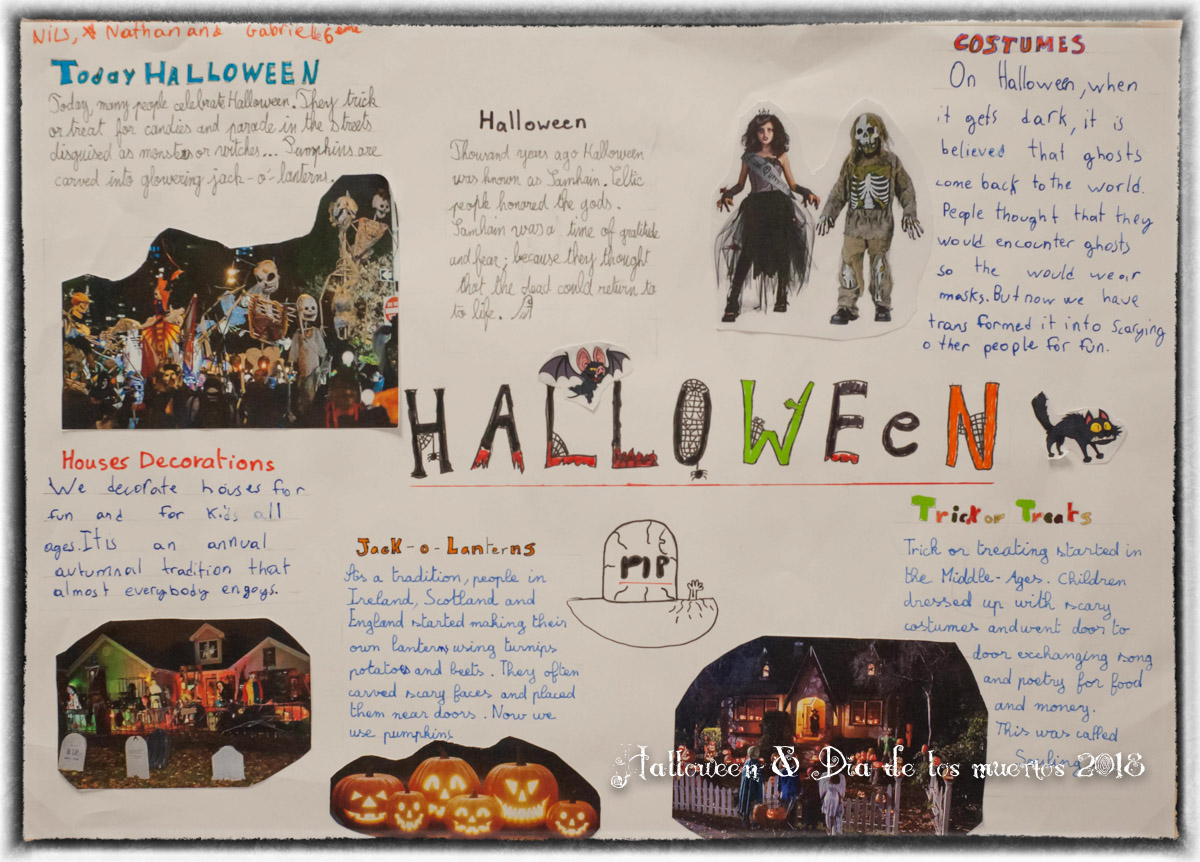 NiLS, Nathan and Gabrielle 6eme
Today HALLOWEEN
Today, many people celebrate Halloween. They trick
or treat for candies and parade in the streets
disguised as monsters or witches... Pumpkins are
carved into glowering jack-o'-lanterns.
Halloween
Thousand years ago Halloween
was known as Samhain. Celtic
people honored the gods.
Samhain was a time of gratitude
and fear, because they thought
that the dead could return to
to life.
COSTUMES
On Halloween, when
it gets dark, it is
believed that ghosts
come back to the world.
People thought that they
would encounter ghosts
so the would wear
masks. But now we have
transformed it into scarying
other people for fun.
HALLOWEeN
Houses Decorations
We decorate houses for
fun and for kids all
ages. It is an annual
autumnal tradition that
almost everybody engoys.
Jack-o-Lanterns
As a tradition, people in
Ireland, Scotland and
England started making their
own lanterns using turnips
potatoes and beets. They often
carved scary faces and placed
them near doors. Now we
use pumpkins
rIP
Trick or Treats
Trick or treating started in
the Middle-Ages. Children
dressed up with scary
costumes and went door to
door exchanging song
and poetry for food
and money.
This was called
Halloween & Dia de los muertos 2018